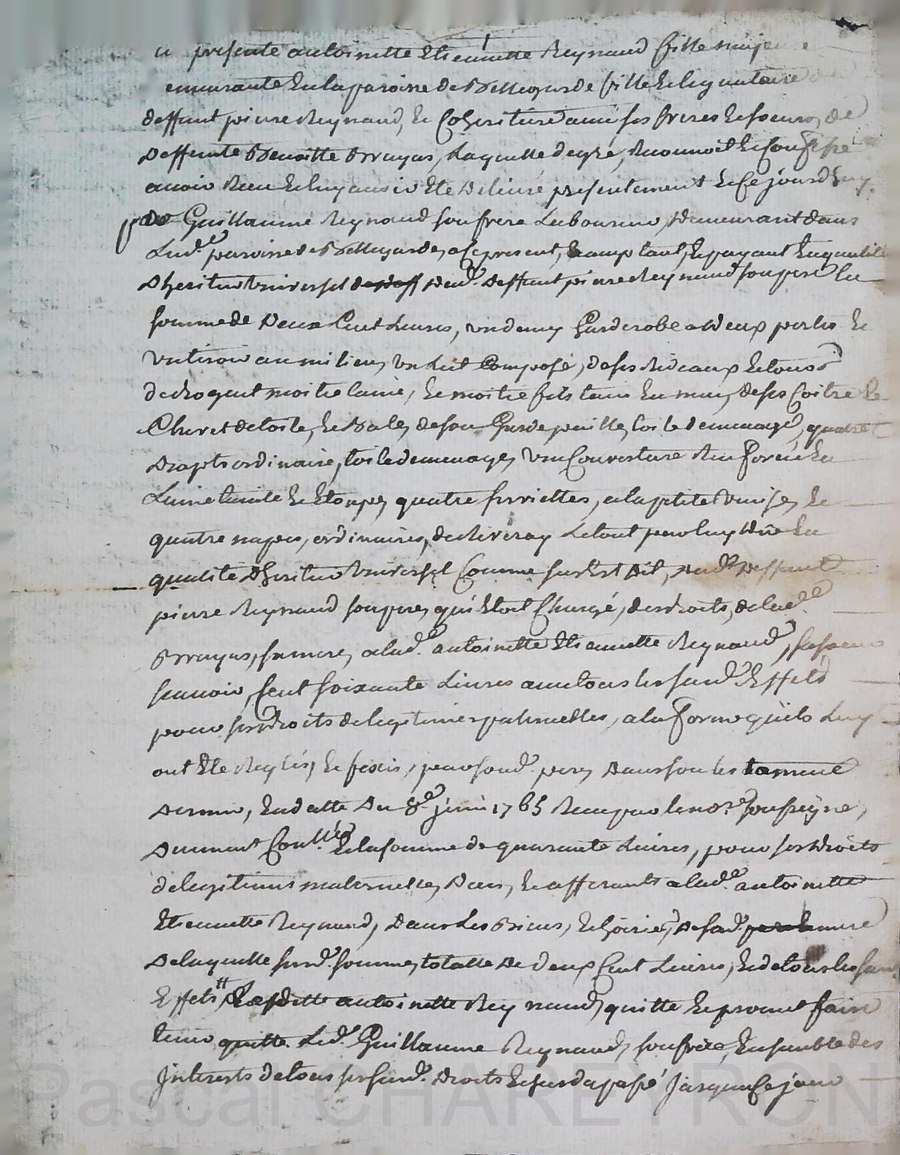 présente antoinette Etiennette Reynaud fille majeure
demeurante En la paroisse de Bellegarde fille Et legataire
deffunt pierre Reynaud, Et Coheritiere avec ses freres Et soeurs, de
deffunte Benoitte Brruyas, Laquelle degré, Reconnoit Et Confesse
avoir Receu Et luy avoir Eté delivré présentement Et Ce jourdhuy
par Guillaume Reynaud son frere Laboureur, demeurant dans
Lade. paroisse de Bellegarde, a Ce present, Et payant En qualité
dheritier universel dud. deffunt pierre Reynaud son pere La
somme de deux Cent Livres, un demy Garderobe a deux portes Et
un tiroir au milieu, un Lit Composé, de ses Rideaux Et tours
de droguet moitie laine, Et moitie fil, de sa Coitre Et
Chevet de toile, Et Bale, de son Garde paille, toile de menage, quatre
draps ordinaire, toile de menage, une Couverture
Laine Et Etoupe, quatre serviettes, a la petite Venise, Et
quatre napes, ordinaires, Le tout par luy dhû En
qualité dheritier universel Comme sus Est dit, dud. deffunt
pierre Reynaud son pere, qui Etoit Chargé, des droits, de lade.
Brruyas, sa mere, a lade. antoinette Etiennette Reynaud, sa soeur
scavoir, Cent soixante Livres avec tous les susd. Effets
pour ses droits de legitimes paternelles, a la forme quils Luy
ont Eté Reglés, Et fixés, par sond. pere, dans son testament
dernier, En datte du 8e. juin 1765 Receu par le nore. soussigné,
duement Conllé. Et la somme de quarante Livres, pour ses droits
de legitimes maternelles, Et afferants a lade. antoinette
Etiennette Reynaud, dans Les Biens, Et hoirie, de sad. mere
de laquelle susd. somme totalle de deux Cent Livres, Et de tous les susd.
Effets Ladite antoinette Reynaud, quitte Et promet faire
tenir quitte Led. Guillaume Reynaud, son frere, Ensemble des
Interests de tous ses susd. droits Et jusqua Ce jour
Pascal CHAREYRON